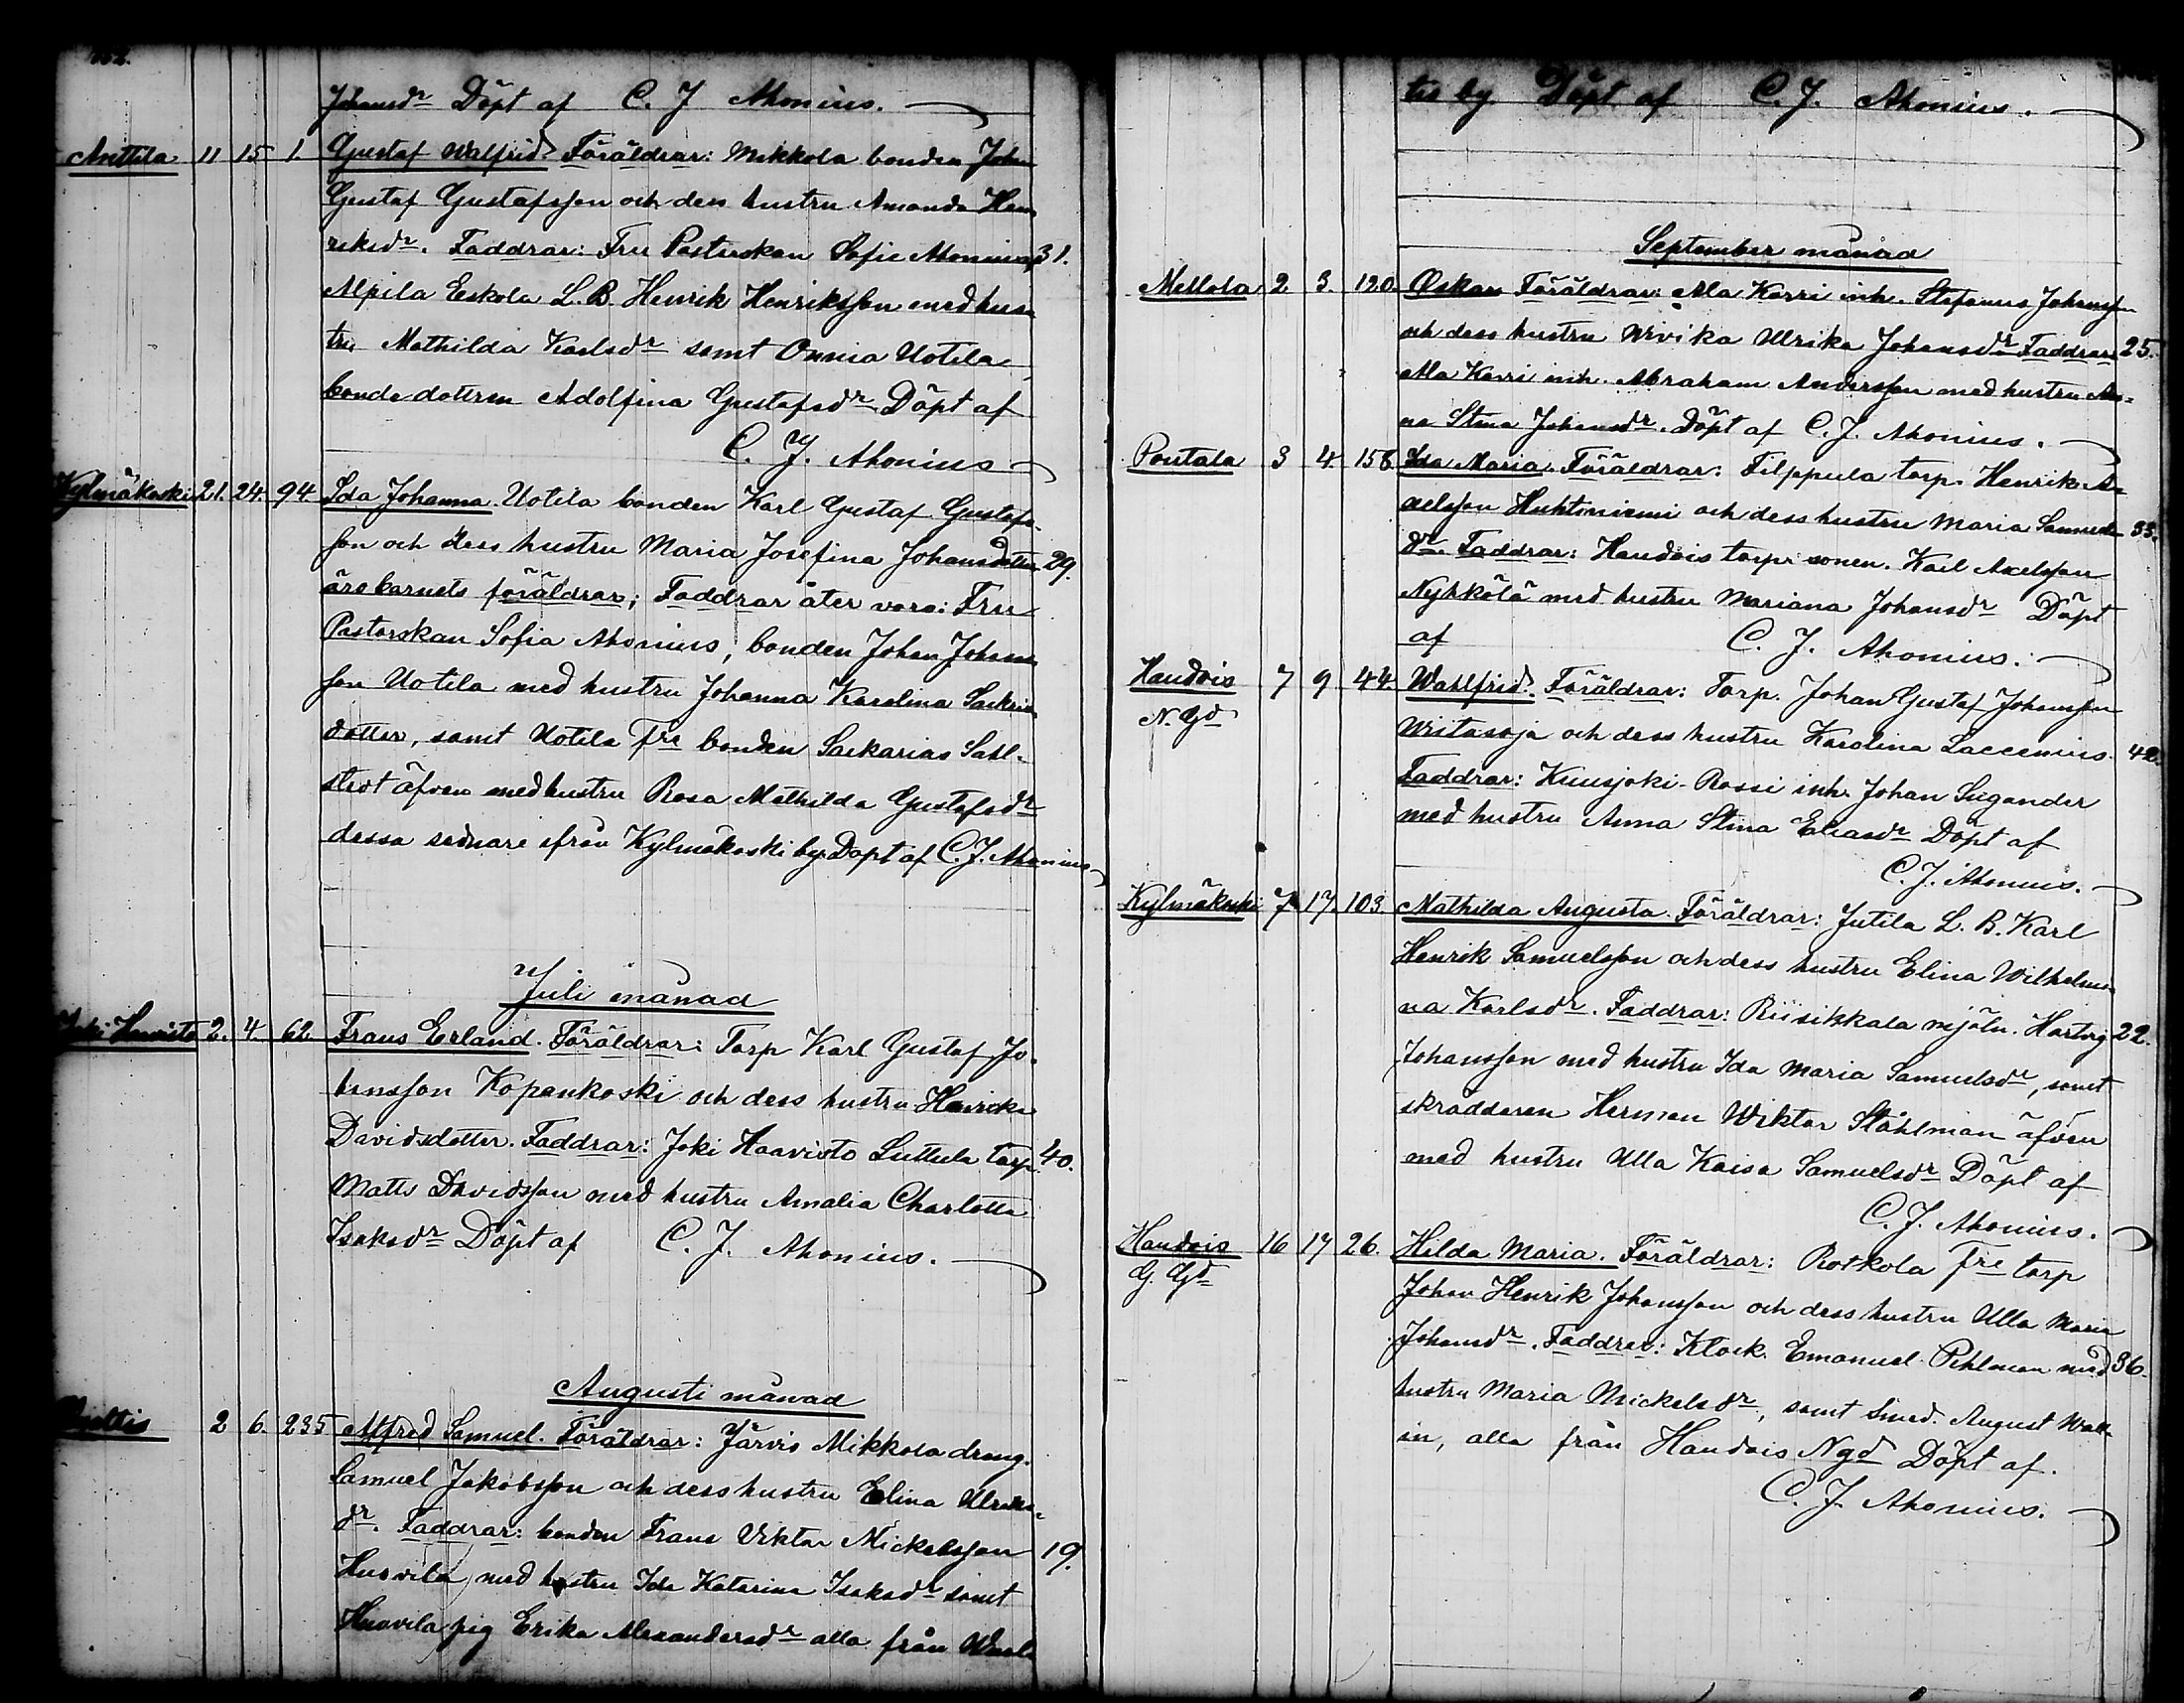 Johansdr Döpt af C. J. Ahonius.
Anttila 11 15 1. Gustaf Walfrid. Föräldrar: Mikkola bonden Johan
Gustaf Gustafsson och dess hustru Amanda Hen
riksdr. Faddrar: Fru Pastorskan Sofie Ahonius, 31.
Alpila Eskola L. B. Henrik Henriksson med hus
tru Mathilda Karlsdr samt Onnia Uotila
bondedottren Adolfina Gustafsdr Döpt af
C. J. Ahonius
Kylmäkoski 21. 24. 94. Ida Johanna. Uotila bonden Karl Gustaf Gustafs-
son och dess hustru Maria Josefina Johansdotter 29.
äro barnets föräldrar; Faddrar åter voro: Fru
Pastorskan Sofia Ahonius, bonden Johan Johans
son Uotila med hustru Johanna Karolina Sackris
dotter, samt Uotila fre bonden Sackarias Sahl-
stedt äfven med hustru Rosa Mathilda Gustafsdr
dessa sednare ifrån Kylmäkoski by. Döpt af C. J. Ahonius
Juli månad
Joki Haavisto 2. 4. 62. Frans Erland. Föräldrar: Torp Karl Gustaf Jo-
hansson Kopankoski och dess hustru Henrika
Davidsdotter. Faddrar: Joki Haavisto Luttula torp. 40.
Matts Davidsson med hustru Amalia Charlotta
Isaksdr Döpt af C. J. Ahonius.
Augusti månad
2 6. 235 Alfred Samuel. Föräldrar: Järvis Mikkola dreng.
Samuel Jakobsson och dess hustru Elina Ulriks-
dr. Faddrar: bonden Frans Viktor Mickelsson 19.
Huovila med hustru Ida Katarina Isaksdr samt
Huovila pig Erika Alexandersdr alla från Waul
tis by. Döpt af C. J. Ahonius.
September månad
Mellola 2. 3. 120. Oskar Föräldrar: Ala Karri inh. Stefanus Johansson
och dess hustru Wivika Ulrika Johansdr Faddrar: 25.
Ala Karri inh. Abraham Andersson med hustru An-
na Stina Johansdr. Döpt af C. J. Ahonius.
Pontala 3 4. 158 Ida Maria. Föräldrar: Filppula torp. Henrik Ax-
aelsson Huhtiniemi och dess hustru Maria Samuels 33.
dr. Faddrar: Haudois torp. sonen. Karl Axelsson
Nyhkölä med hustru Mariana Johansdr Döpt
af C. J. Ahonius.
Haudois 7 9 44. Wahlfrid. Föräldrar: Torp. Johan Gustaf Johansson
N. Gd Wiitasoja och dess hustru Karolina Laccenius. 42.
Faddrar: Kuusjoki-Rossi inh. Johan Sugander
med hustru Anna Stina Eliasdr Döpt af
C. J. Ahonius.
Kylmäkoski 7 17. 103. Mathilda Augusta. Föräldrar: Jutila L. B. Karl
Henrik Samuelsson och dess hustru Elina Wilhelmi
na Karlsdr. Faddrar: Riisikkala mjöln. Hartvig 22.
Johansson med hustru Ida Maria Samuelsdr, samt
skräddaren Herman Wiktor Ståhlman äfven
med hustru Ulla Kaisa Samuelsdr Döpt af
C. J. Ahonius.
Haudois 16 17 26. Hilda Maria. Föräldrar: Rotkola fre torp
G. Gd Johan Henrik Johansson och dess hustru Ulla Maria
Johansdr. Faddrar: Klock. Emanuel Pihlman med 36.
hustru Maria Mickelsdr, samt Smed. August Wall-
in, alla från Haudois Ngd Döpt af.
C. J. Ahonius.